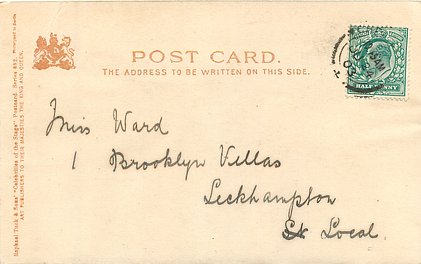 POST CARD.
THE ADDRESS TO BE WRITTEN ON THIS SIDE.
HALFPENNY
Raphael Tuck & Sons' "Celebrities of the Stage" Postcard. Series 662.
ART PUBLISHERS TO THEIR MAJESTIES THE KING AND QUEEN.
Miss Ward
1 Brooklyn Villas
Leckhampton
Local.